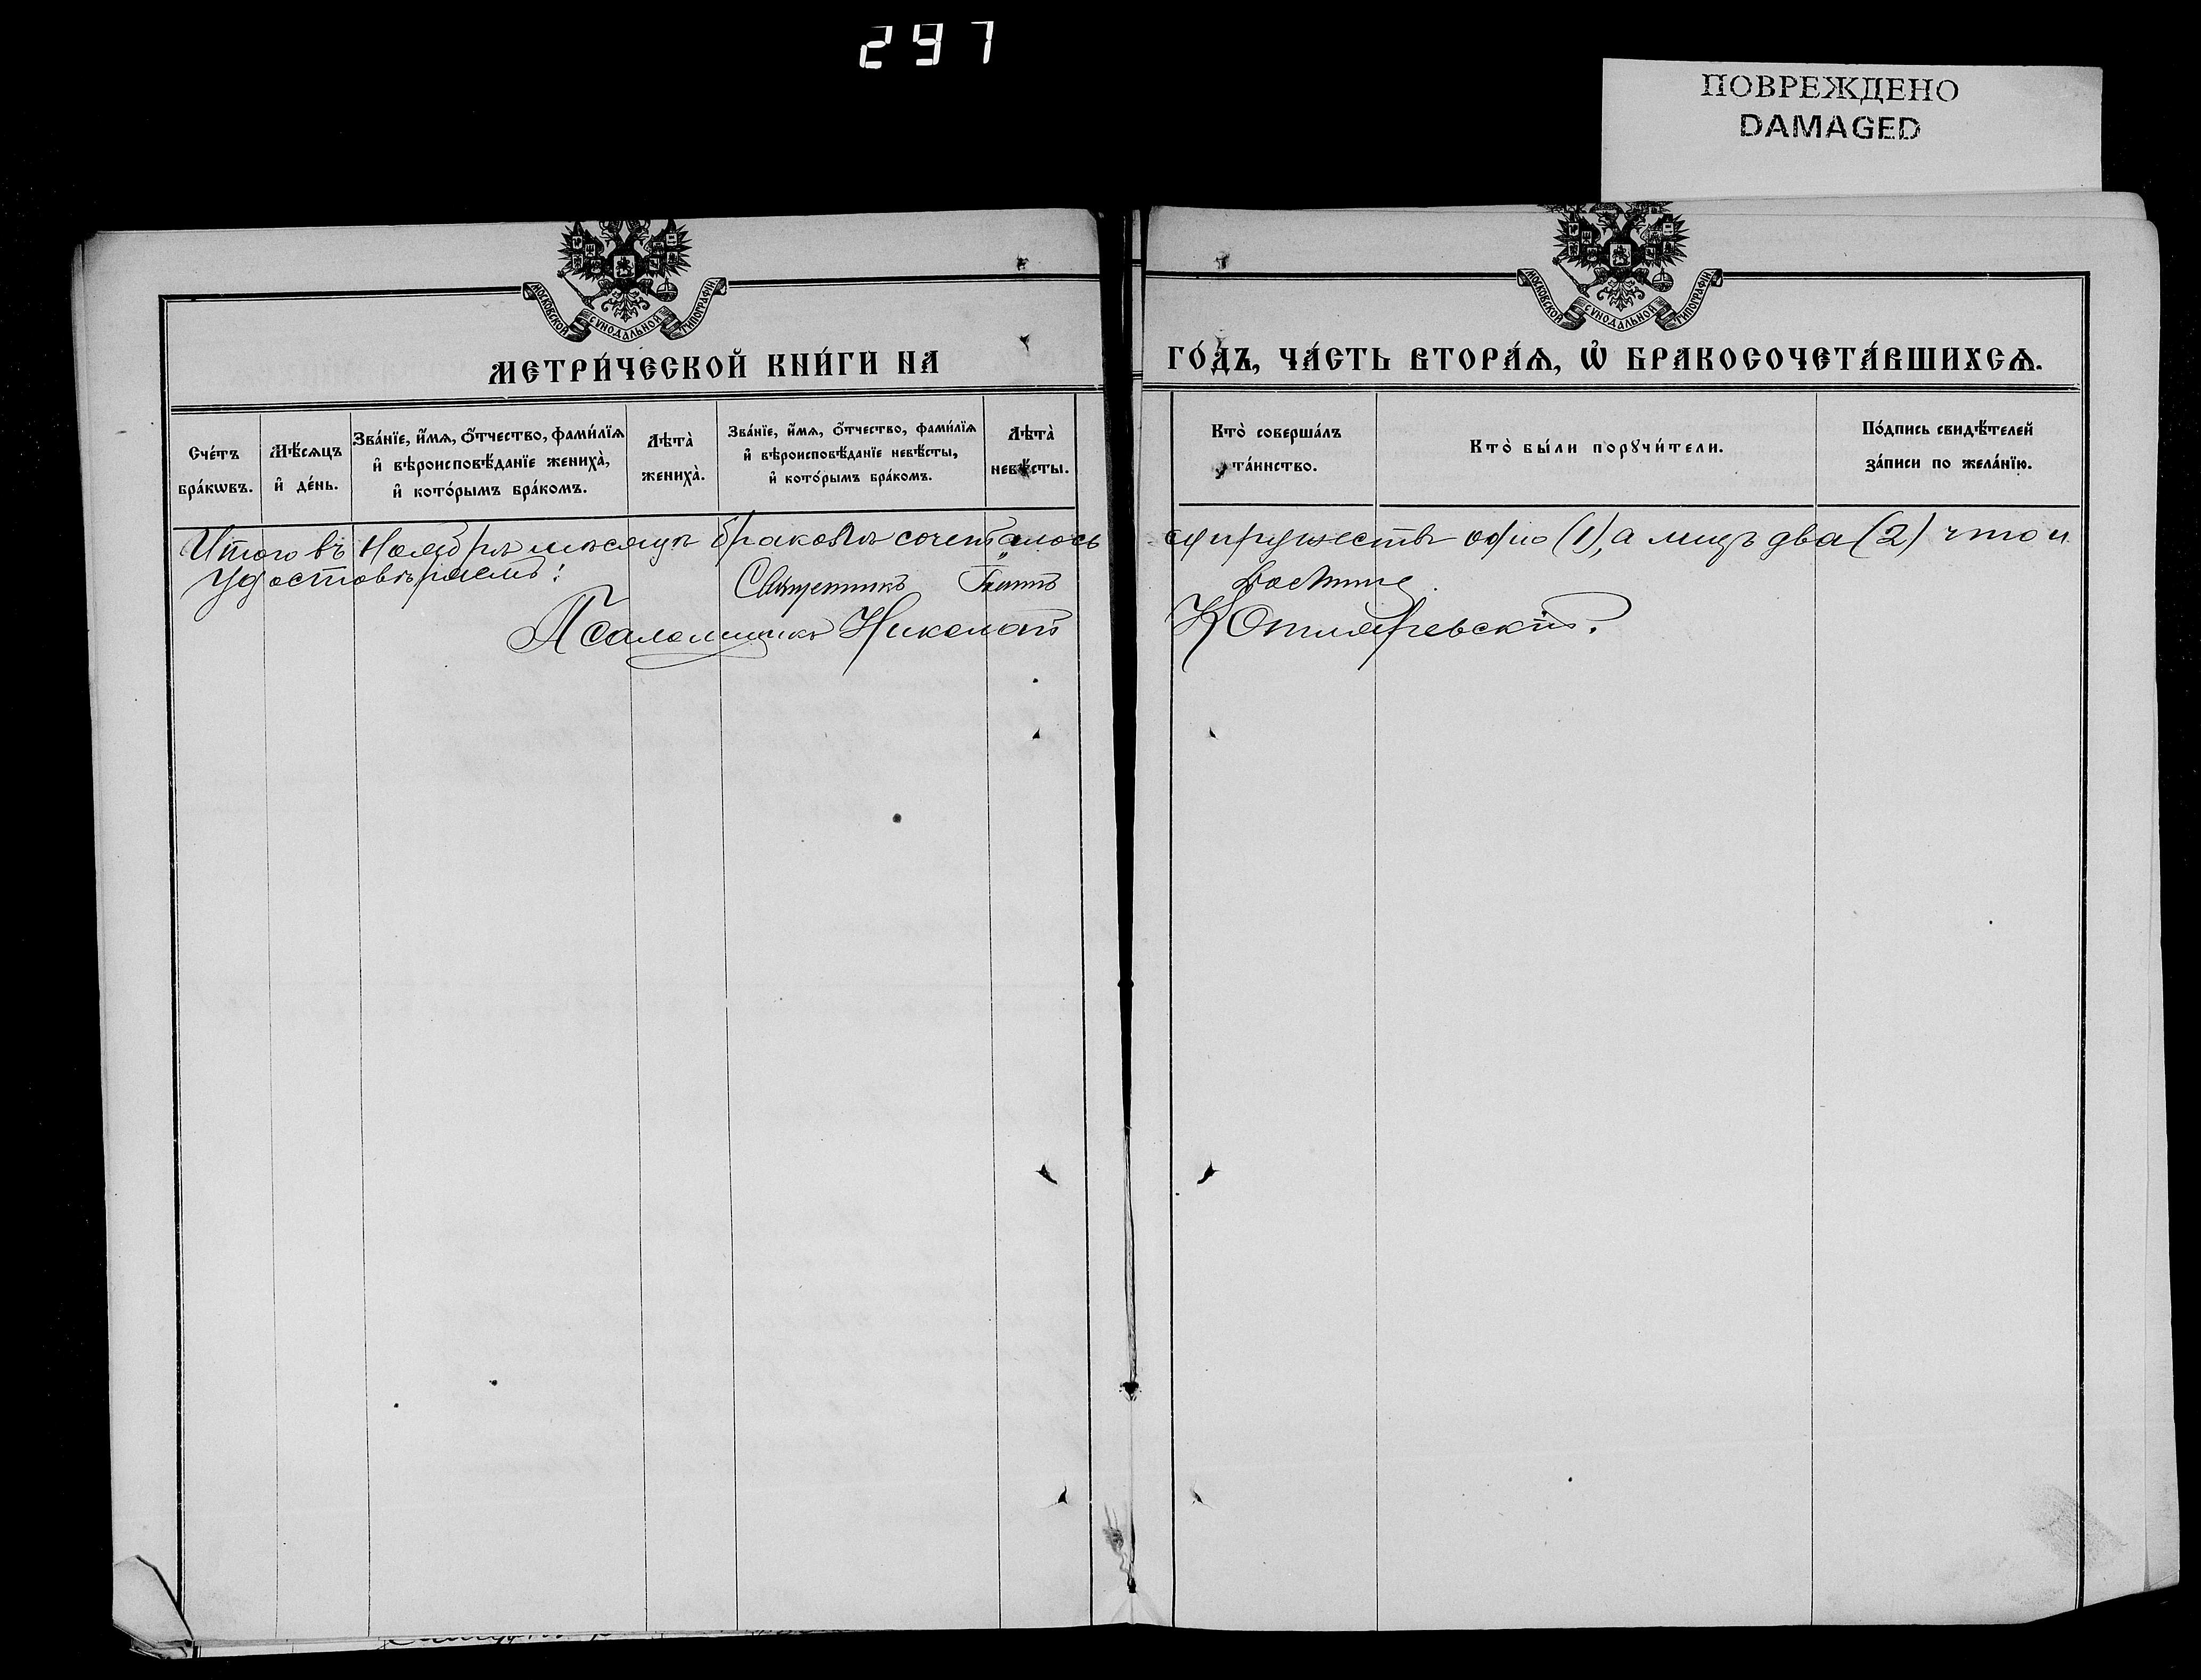 297
ПОВРЕЖДЕНО
DAMAGED
МОСКОВСКОЙ СѴНОДАЛЬНОЙ ТИПОГРАФІИ
МОСКОВСКОЙ СѴНОДАЛЬНОЙ ТИПОГРАФІИ
МЕТРИ́ЧЕСКОЙ КНИ́ГИ НА ГО́ДЪ, ЧА́СТЬ ВТОРА́Ѧ, Ѡ҆ БРАКОСОЧЕТА́ВШИХСѦ.
Сче́тъ
бра́кѡвъ.
Мѣ́сѧцъ
и҆ де́нь.
Зва́нїе, и҆́мѧ, ѻ҆́тчество, фами́лїѧ
и҆ вѣроисповѣ́данїе жениха̀,
и҆ кото́рымъ бра́комъ.
Лѣта̀
жениха̀.
Зва́нїе, и҆́мѧ, ѻ҆́тчество, фами́лїѧ
и҆ вѣроисповѣ́данїе невѣ́сты,
и҆ кото́рымъ бра́комъ.
Лѣта̀
невѣ́сты.
Кто̀ соверша́лъ
та́инство.
Кто̀ бы́ли порꙋчи́тели.
По́дпись свидѣ́телей
за́писи по жела́нїю.
Итого въ Ноябрѣ мѣсяцѣ браковъ сочеталось супружествъ одно (1), а лицъ два (2) что и
удостовѣряемъ:
Священникъ
Псаломщикъ Николай Котляревскій.